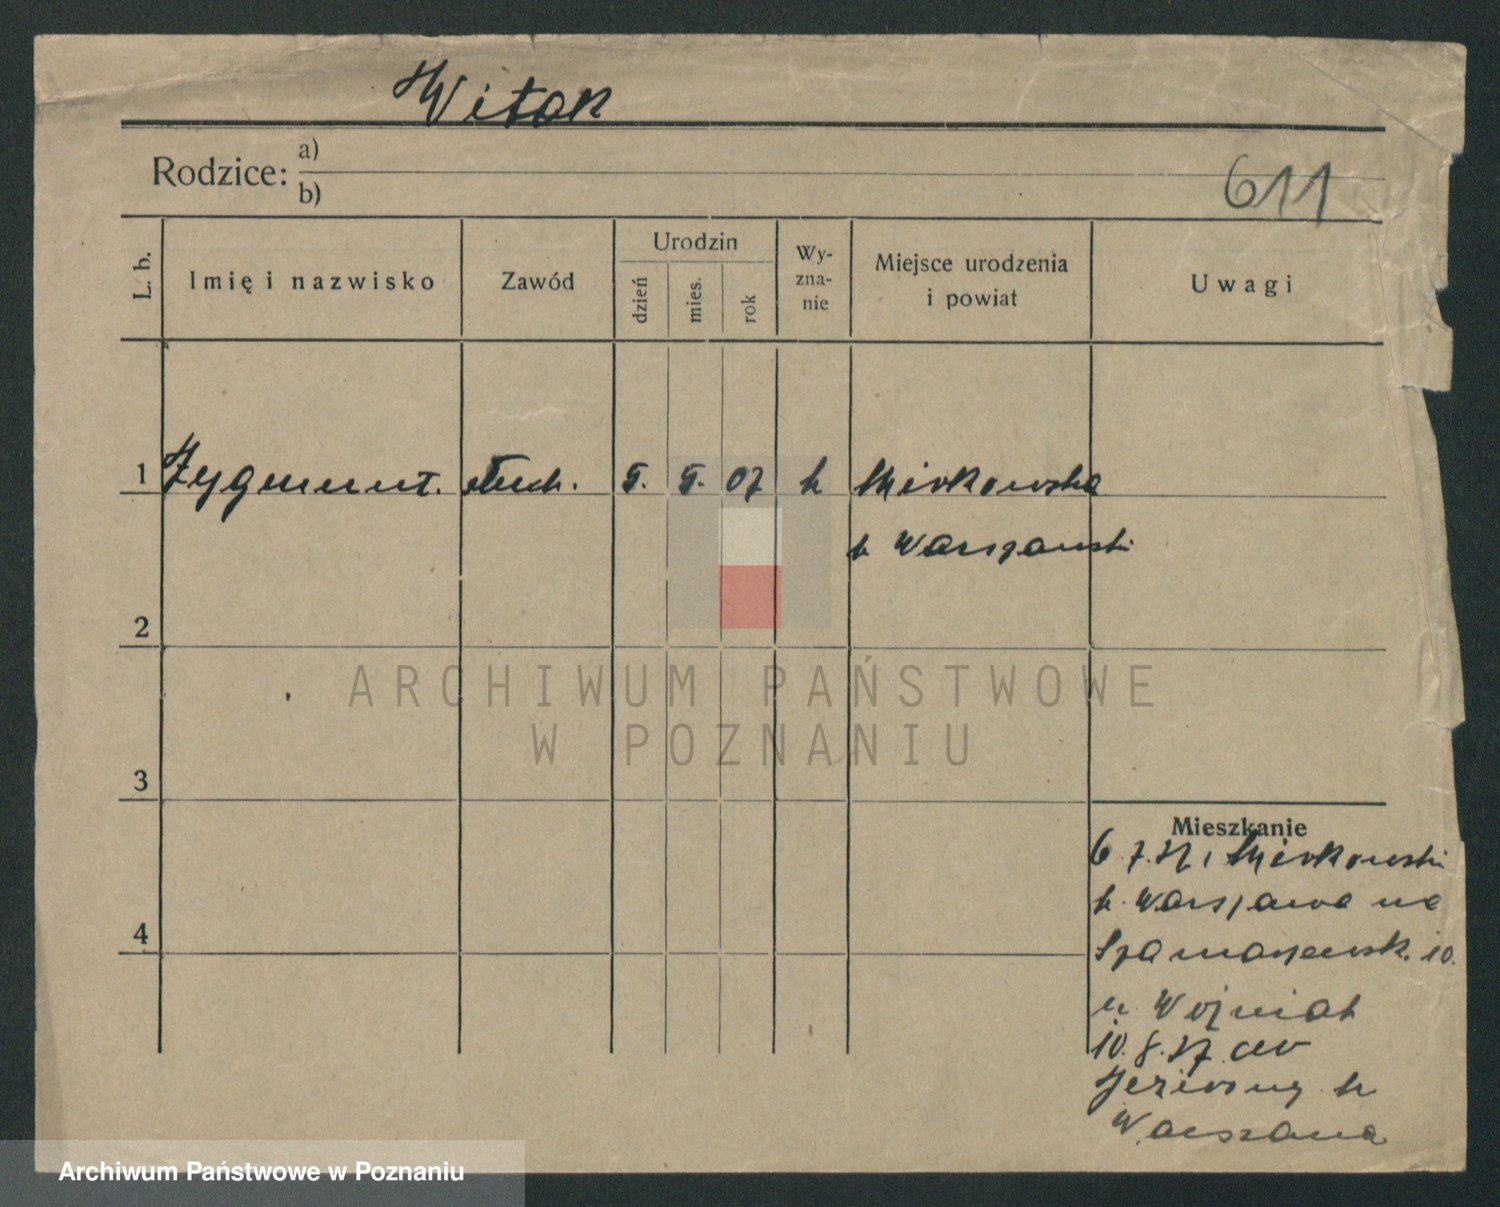 Witak
Rodzice: a)
b)
611
L. b.
Imię i nazwisko
Zawód
Urodzin
dzień
mies.
rok
Wy-
zna-
nie
Miejsce urodzenia
i powiat
Uwagi
1 Zygmunt. 5. 5. 07 k Mirkowska
k Warszawski
2
ARCHIWUM PAŃSTWOWE
W POZNANIU
3
Mieszkanie
6.7.27, Mirkowski
k. Warszawa na
10.
u Woźniak
10.8.27 do
Jeziorny k
Warszawa
4
Archiwum Państwowe w Poznaniu